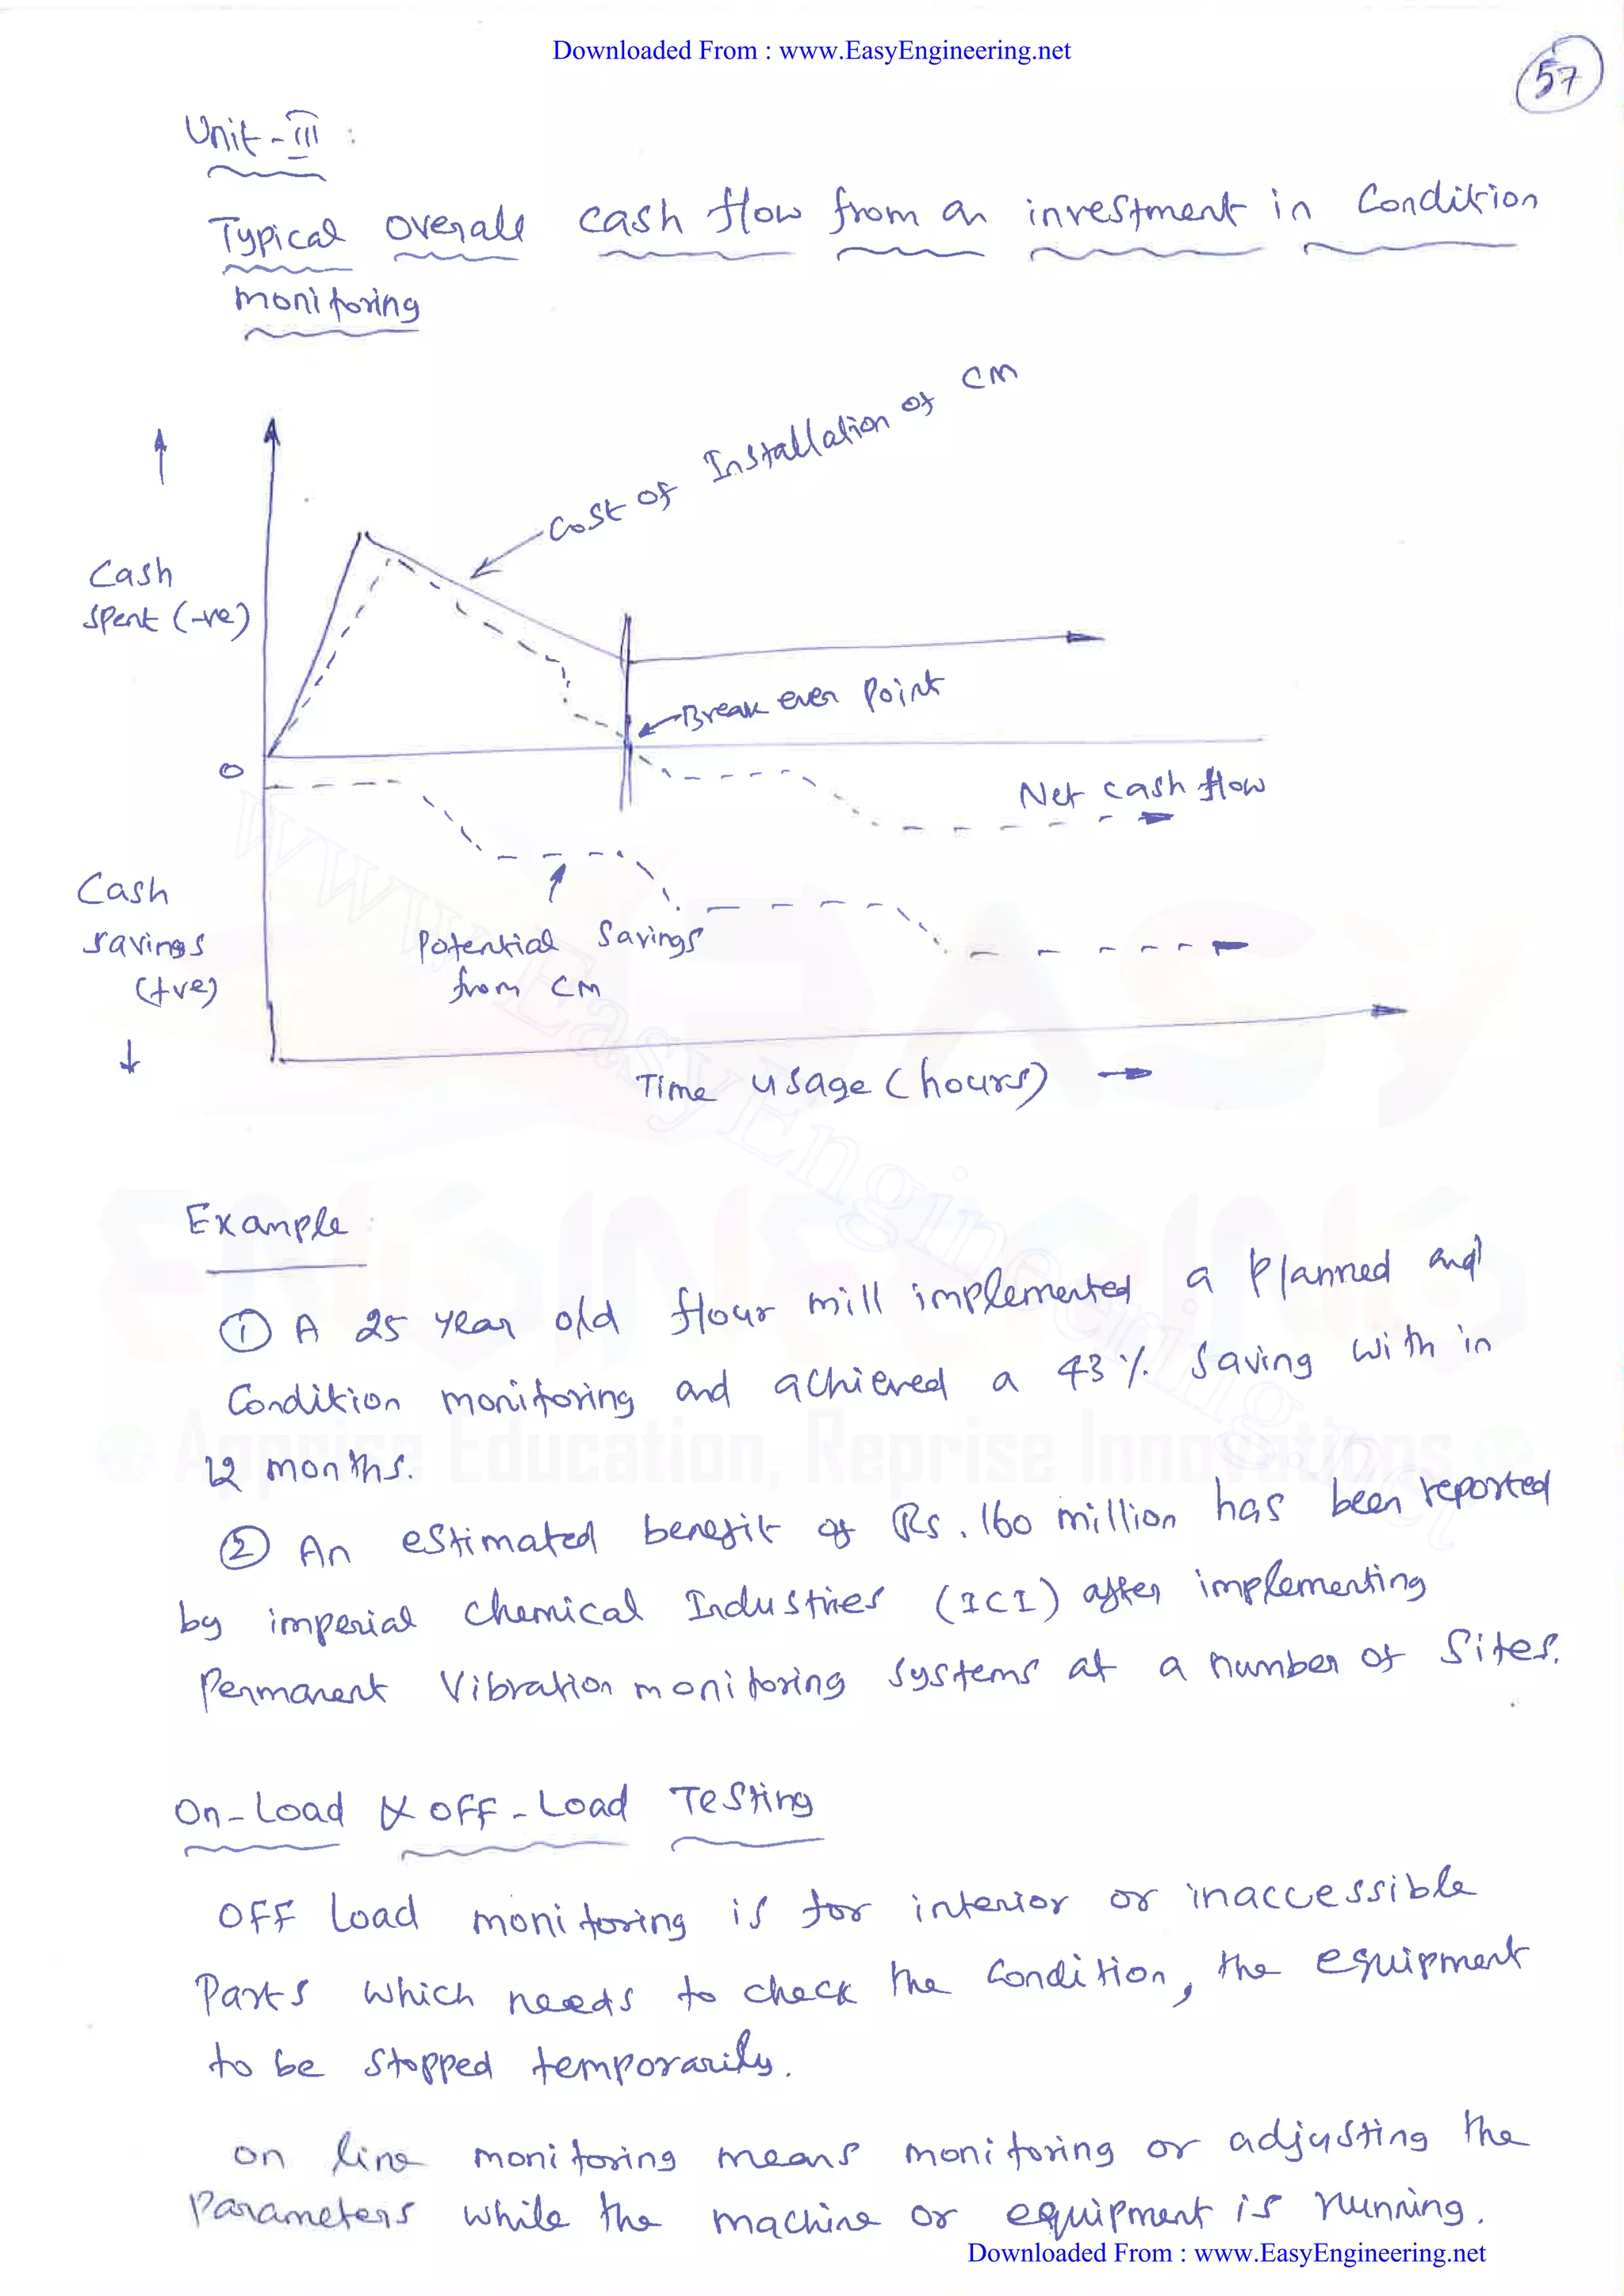 Downloaded From : www.EasyEngineering.net
57
Unit - III :
Typical overall cash flow from an investment in Condition
monitoring
Cost of Installation of CM
Cash
spent (-ve)
Break even Point
0
Net cash flow
Cash
savings
(+ve)
Potential Savings
from CM
Time usage (hours)
Example
① A 25 year old flour mill implemented a planned and
Condition monitoring and achieved a 43 % Saving with in
12 months.
② An estimated benefit of Rs. 160 million has been reported
by imperial chemical Industries (ICI) after implementing
Permanent Vibration monitoring systems at a number of Sites.
On-Load & OFF-Load Testing
OFF Load monitoring is for interior or inaccessible
Parts which needs to check the Condition, the equipment
to be stopped temporarily.
on line monitoring means monitoring or adjusting the
Parameters while the machine or equipment is running.
Downloaded From : www.EasyEngineering.net
www.EasyEngineering.net
EASY
ENGINEERING
Apprise Education, Reprise Innovations